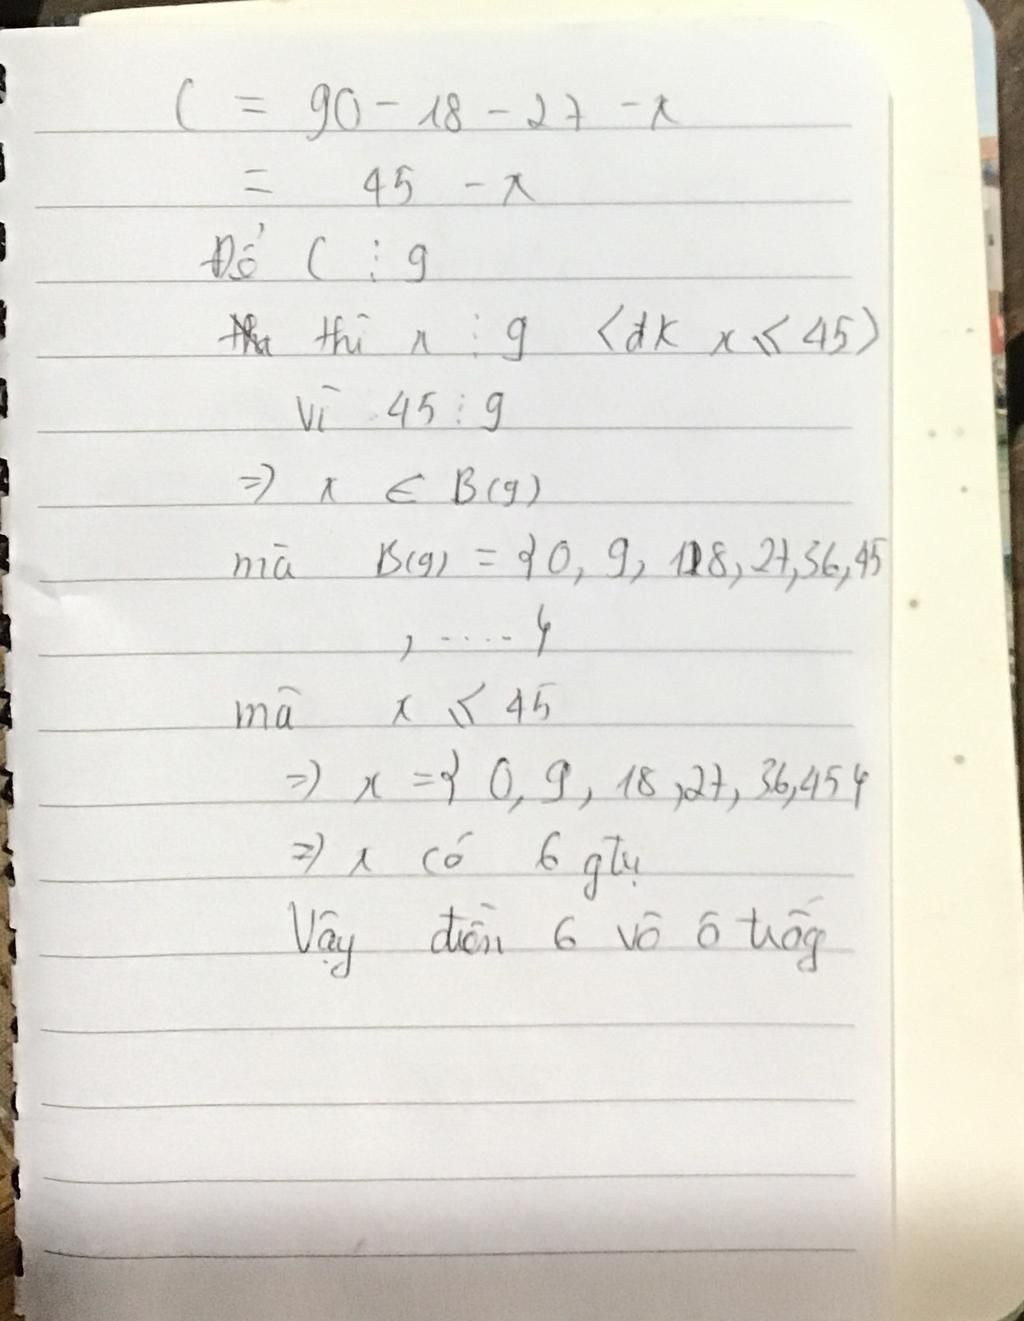 C = 90 - 18 - 27 - x
= 45 - x
Để C ⋮ 9
thì x ⋮ 9 <đk x ⩽ 45>
Vì 45 ⋮ 9
=> x ∈ B(9)
mà B(9) = {0, 9, 18, 27, 36, 45
, ..... }
mà x ⩽ 45
=> x = { 0, 9, 18, 27, 36, 45 }
=> x có 6 gtrị
Vậy điền 6 vô ô trốg